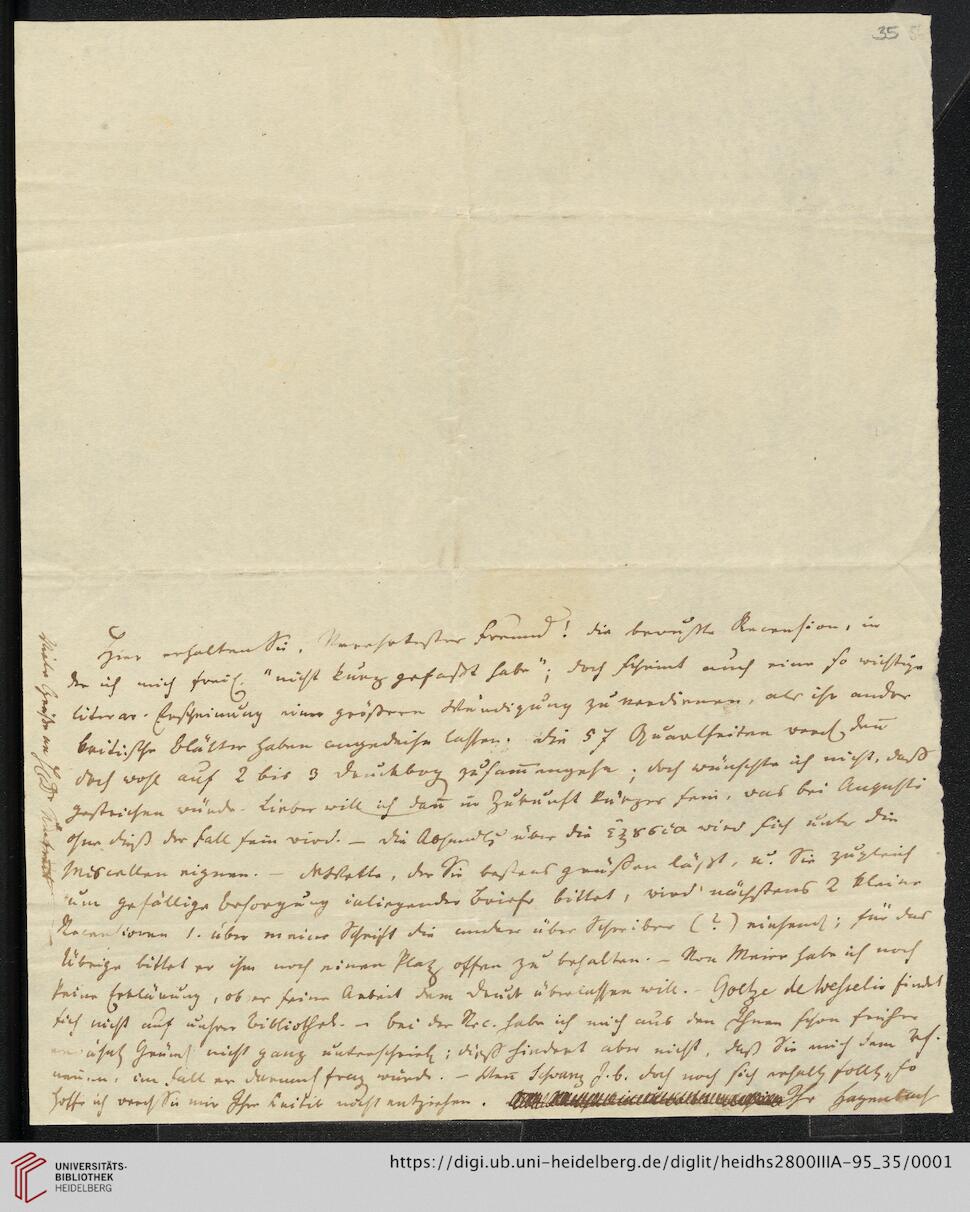 35
Hier erhalten Sie, Verehrtester Freund! die bewußte Recension, in
der ich mich freil. "nicht kurz gefaßt habe"; doch scheint auch eine so wichtige
literar. Erscheinung einer größern Würdigung zu verdienen, als ihr andre
kritische Blätter haben angedeihen lassen. Die 57 Quartseiten werd. dañ
doch wohl auf 2 bis 3 Druckbog. zusam̄engehn; doch wünschte ich nicht, daß
gestrichen würde. Lieber will ich dañ in Zukunft kürzer sein, was bei Augusti
ohne dieß der Fall sein wird. — Die Abhandlg über die wird sich unter die
Miscellen eignen. — deWette, der Sie bestens grüßen läßt, u. Sie zugleich
um gefällige Besorgung inliegender Briefe bittet, wird nächstens 2 kleine
Recensionen 1. über meine Schrift die andere über Schreiber (?) einsend; für das
Übrige bittet er ihm noch einen Platz offen zu behalten. — Von Meier habe ich noch
keine Erklärung, ob er seine Arbeit dem Druck überlassen will. — Goetze de Wesselio findet
sich nicht auf unsrer Bibliothek. — bei der Rec. habe ich mich aus den Ihnen schon früher
Gründ nicht ganz unterschrieb; dieß hindert aber nicht, daß Sie mich dem Vf.
nennen, im Fall er darnach frag. würde. — Wenn Schwarz J. b. doch noch sich erhalt. sollt., so
hoffe ich werd. Sie mir Ihre Kritik nicht entziehen. Ihr Hagenbach
Viele Grüße an HE Dr.
UNIVERSITÄTS-
BIBLIOTHEK
HEIDELBERG
https://digi.ub.uni-heidelberg.de/diglit/heidhs2800IIIA-95_35/0001